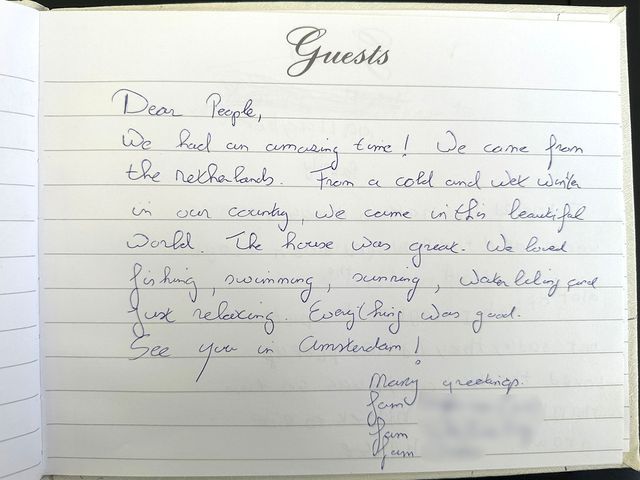 Guests
Dear People,
We had an amazing time! We came from
the netherlands. From a cold and wet winter
in our country, we came in this beautiful
world. The house was great. We loved
fishing, swimming, sunning, and
just relaxing. Everything was good.
See you in Amsterdam!
Many greetings.
fam
fam
fam